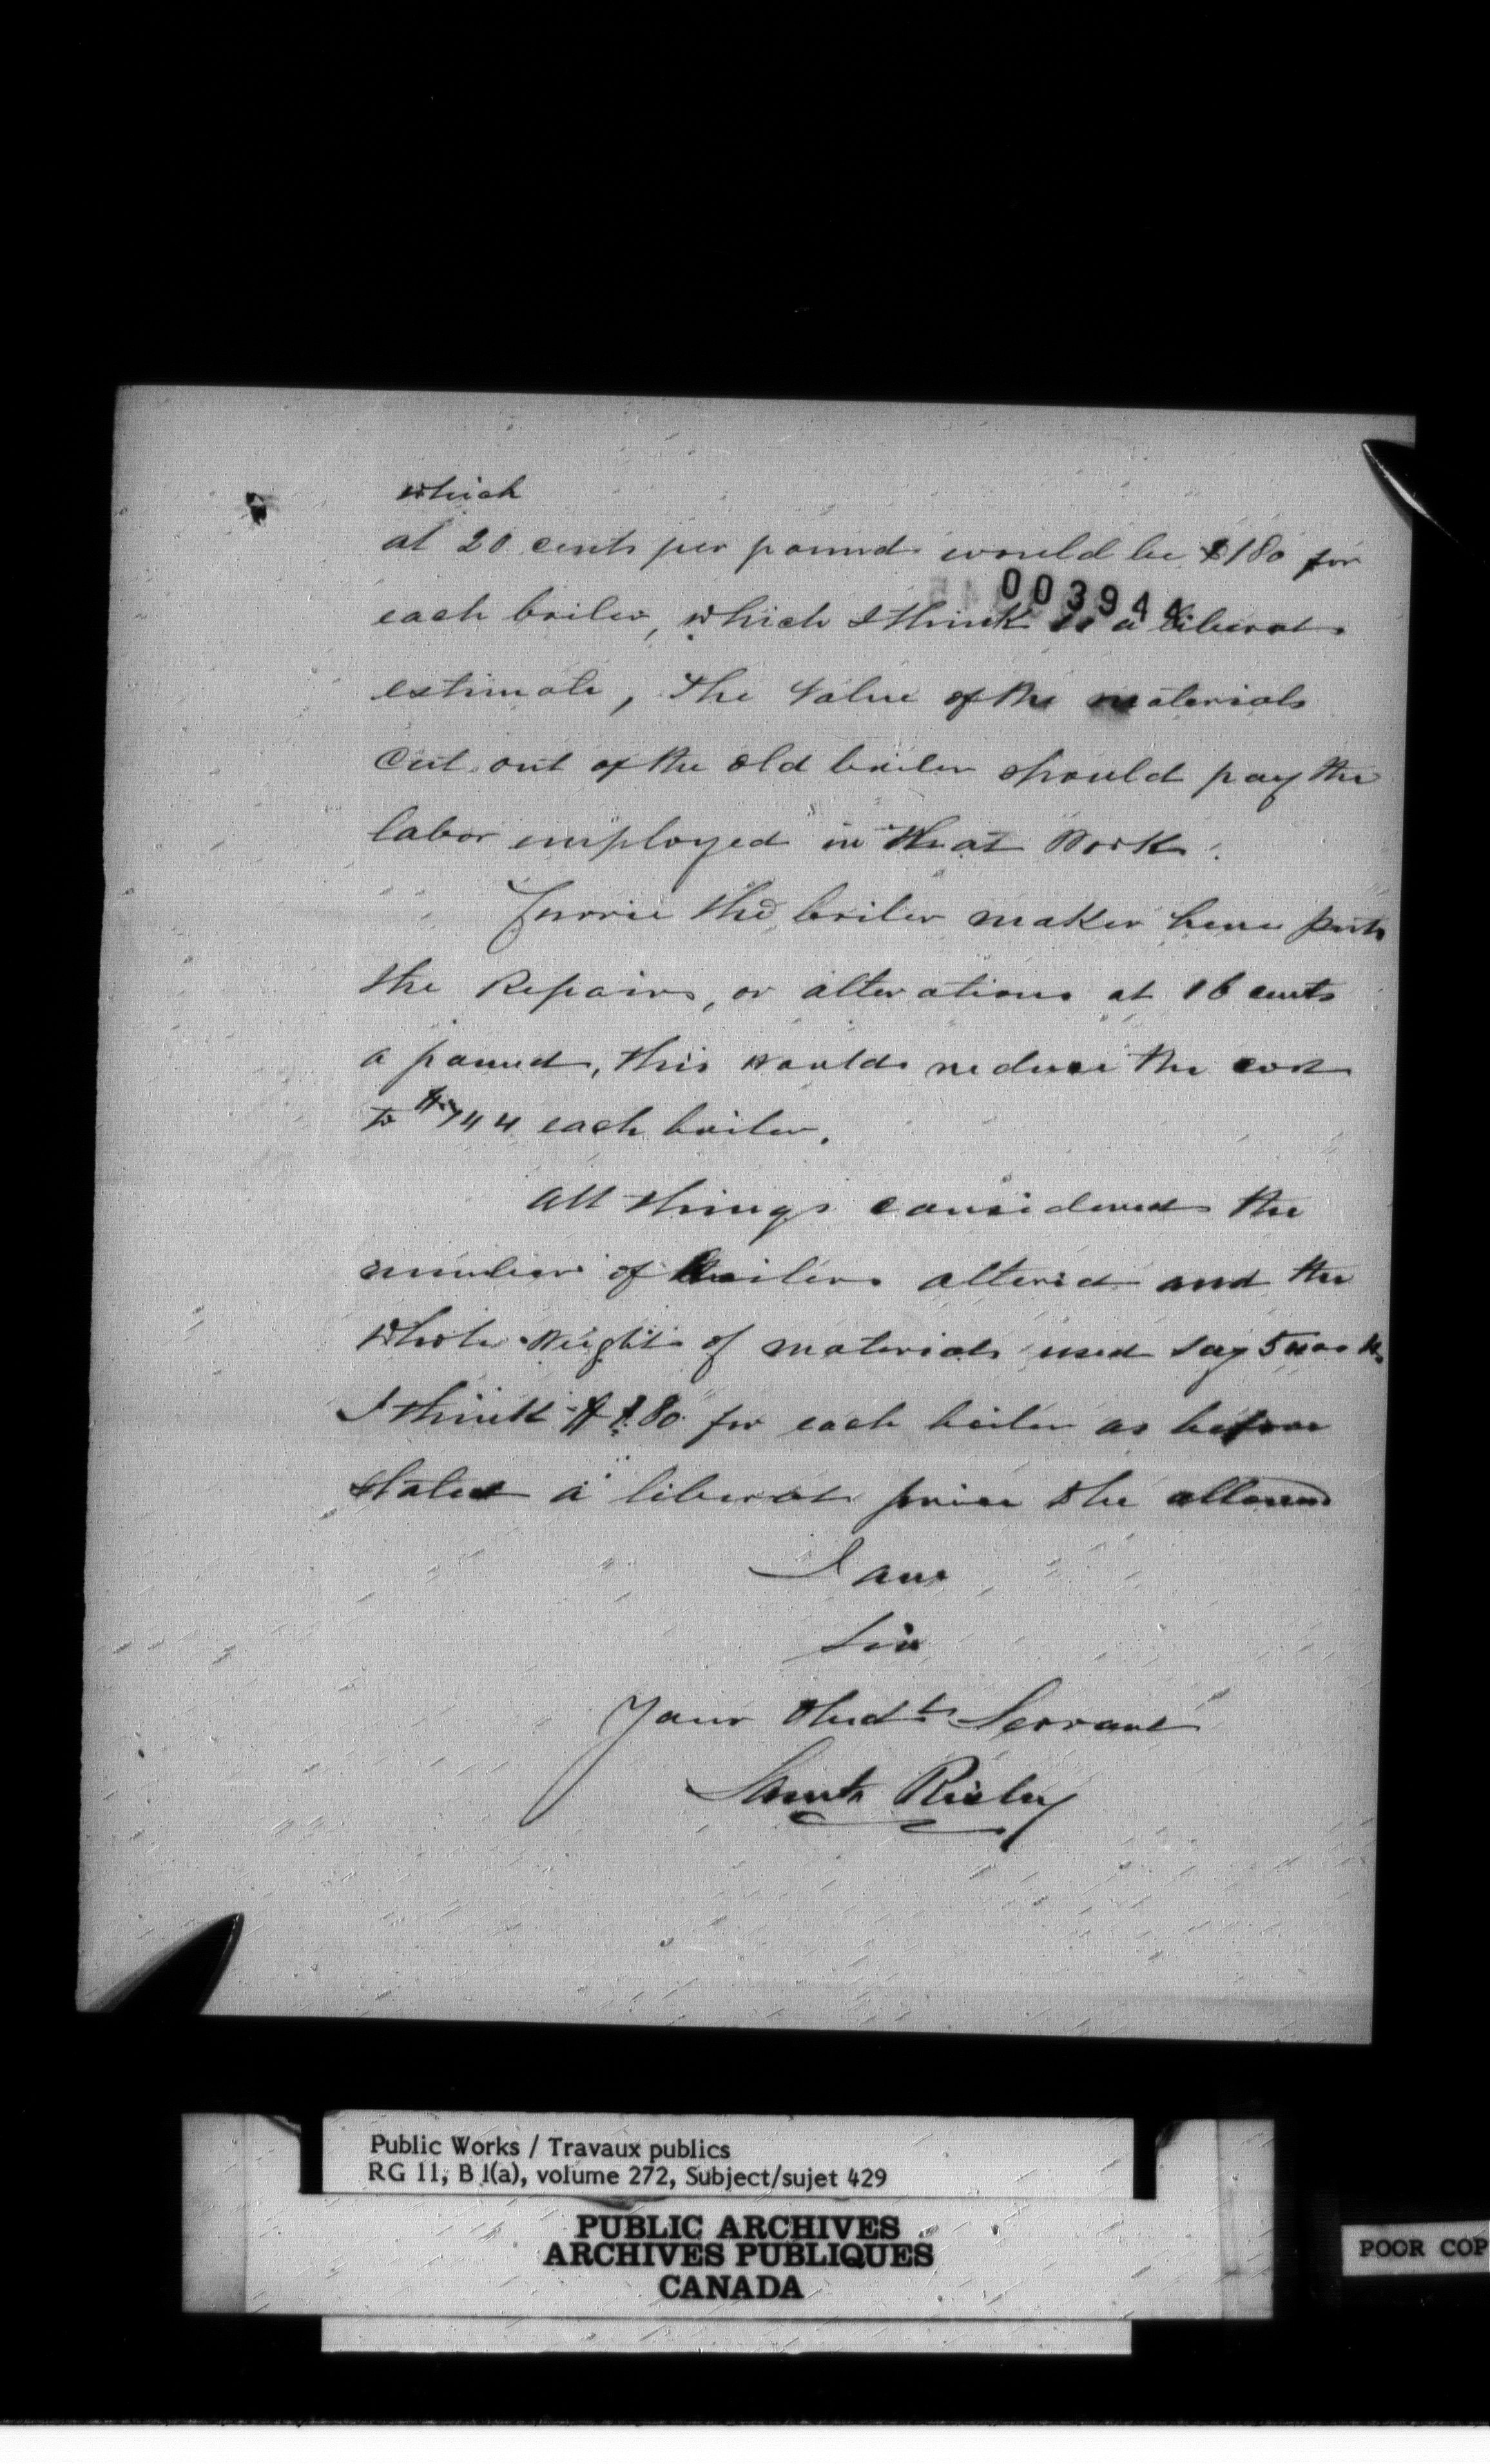 which
at 20 cents per pound would be $180 for
003944
each boiler, which I think is a liberal
estimate, The Value of the materials
Cut out of the old boiler should pay the
labor employed in that Work.
the boiler maker here puts
the Repairs, or alterations at 16 cents
a pound, this would reduce the cost
to $144 each boiler.
All things considered the
number of boilers altered and the
whole weight of materials used say
I think $180 for each boiler as before
stated a liberal price to be allowed
I am
Sir
Your Obedt Servant
Risley
Public Works / Travaux publics
RG 11, B 1(a), volume 272, Subject/sujet 429
PUBLIC ARCHIVES
ARCHIVES PUBLIQUES
CANADA
POOR COP